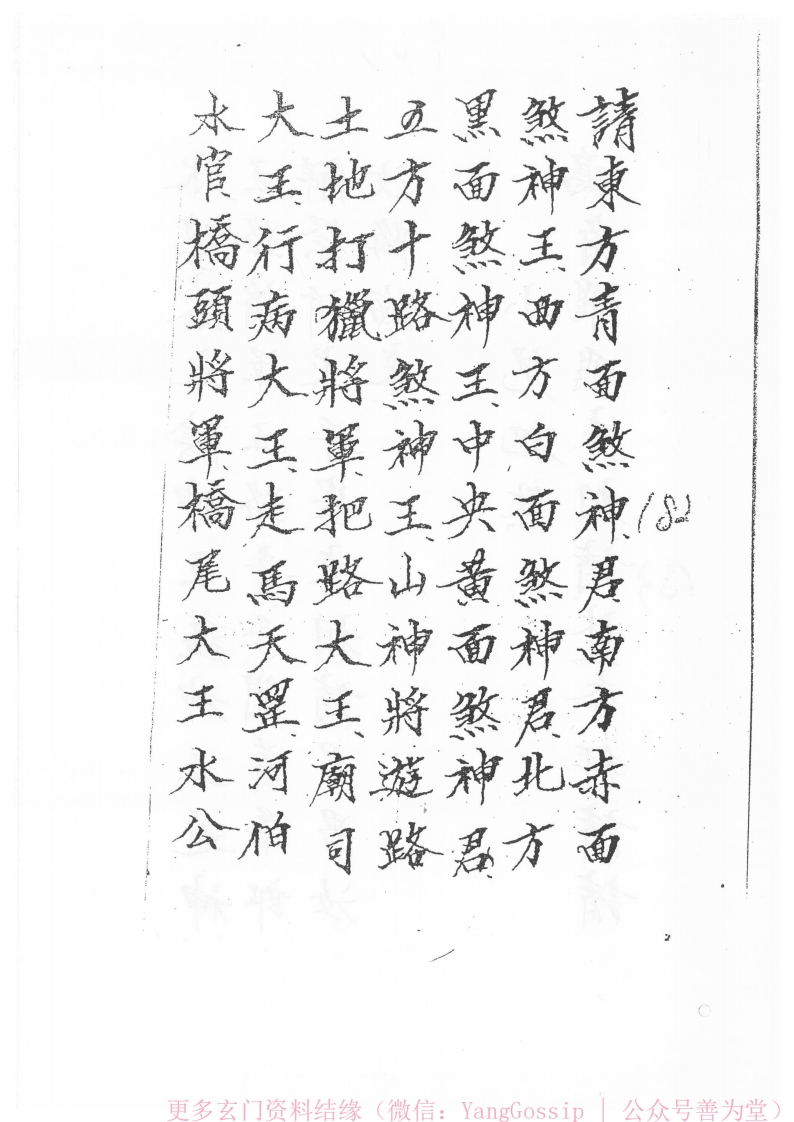 請東方青面煞神君南方赤面
煞神王西方白面煞神君北方
黑面煞神王中央黃面煞神君
五方十路煞神王山神將遊路
土地打獵將軍把路大王廟司
大王行病大王走馬天罡河伯
水官橋頭將軍橋尾大王水公
182
更多玄门资料结缘（微信：YangGossip | 公众号善为堂）